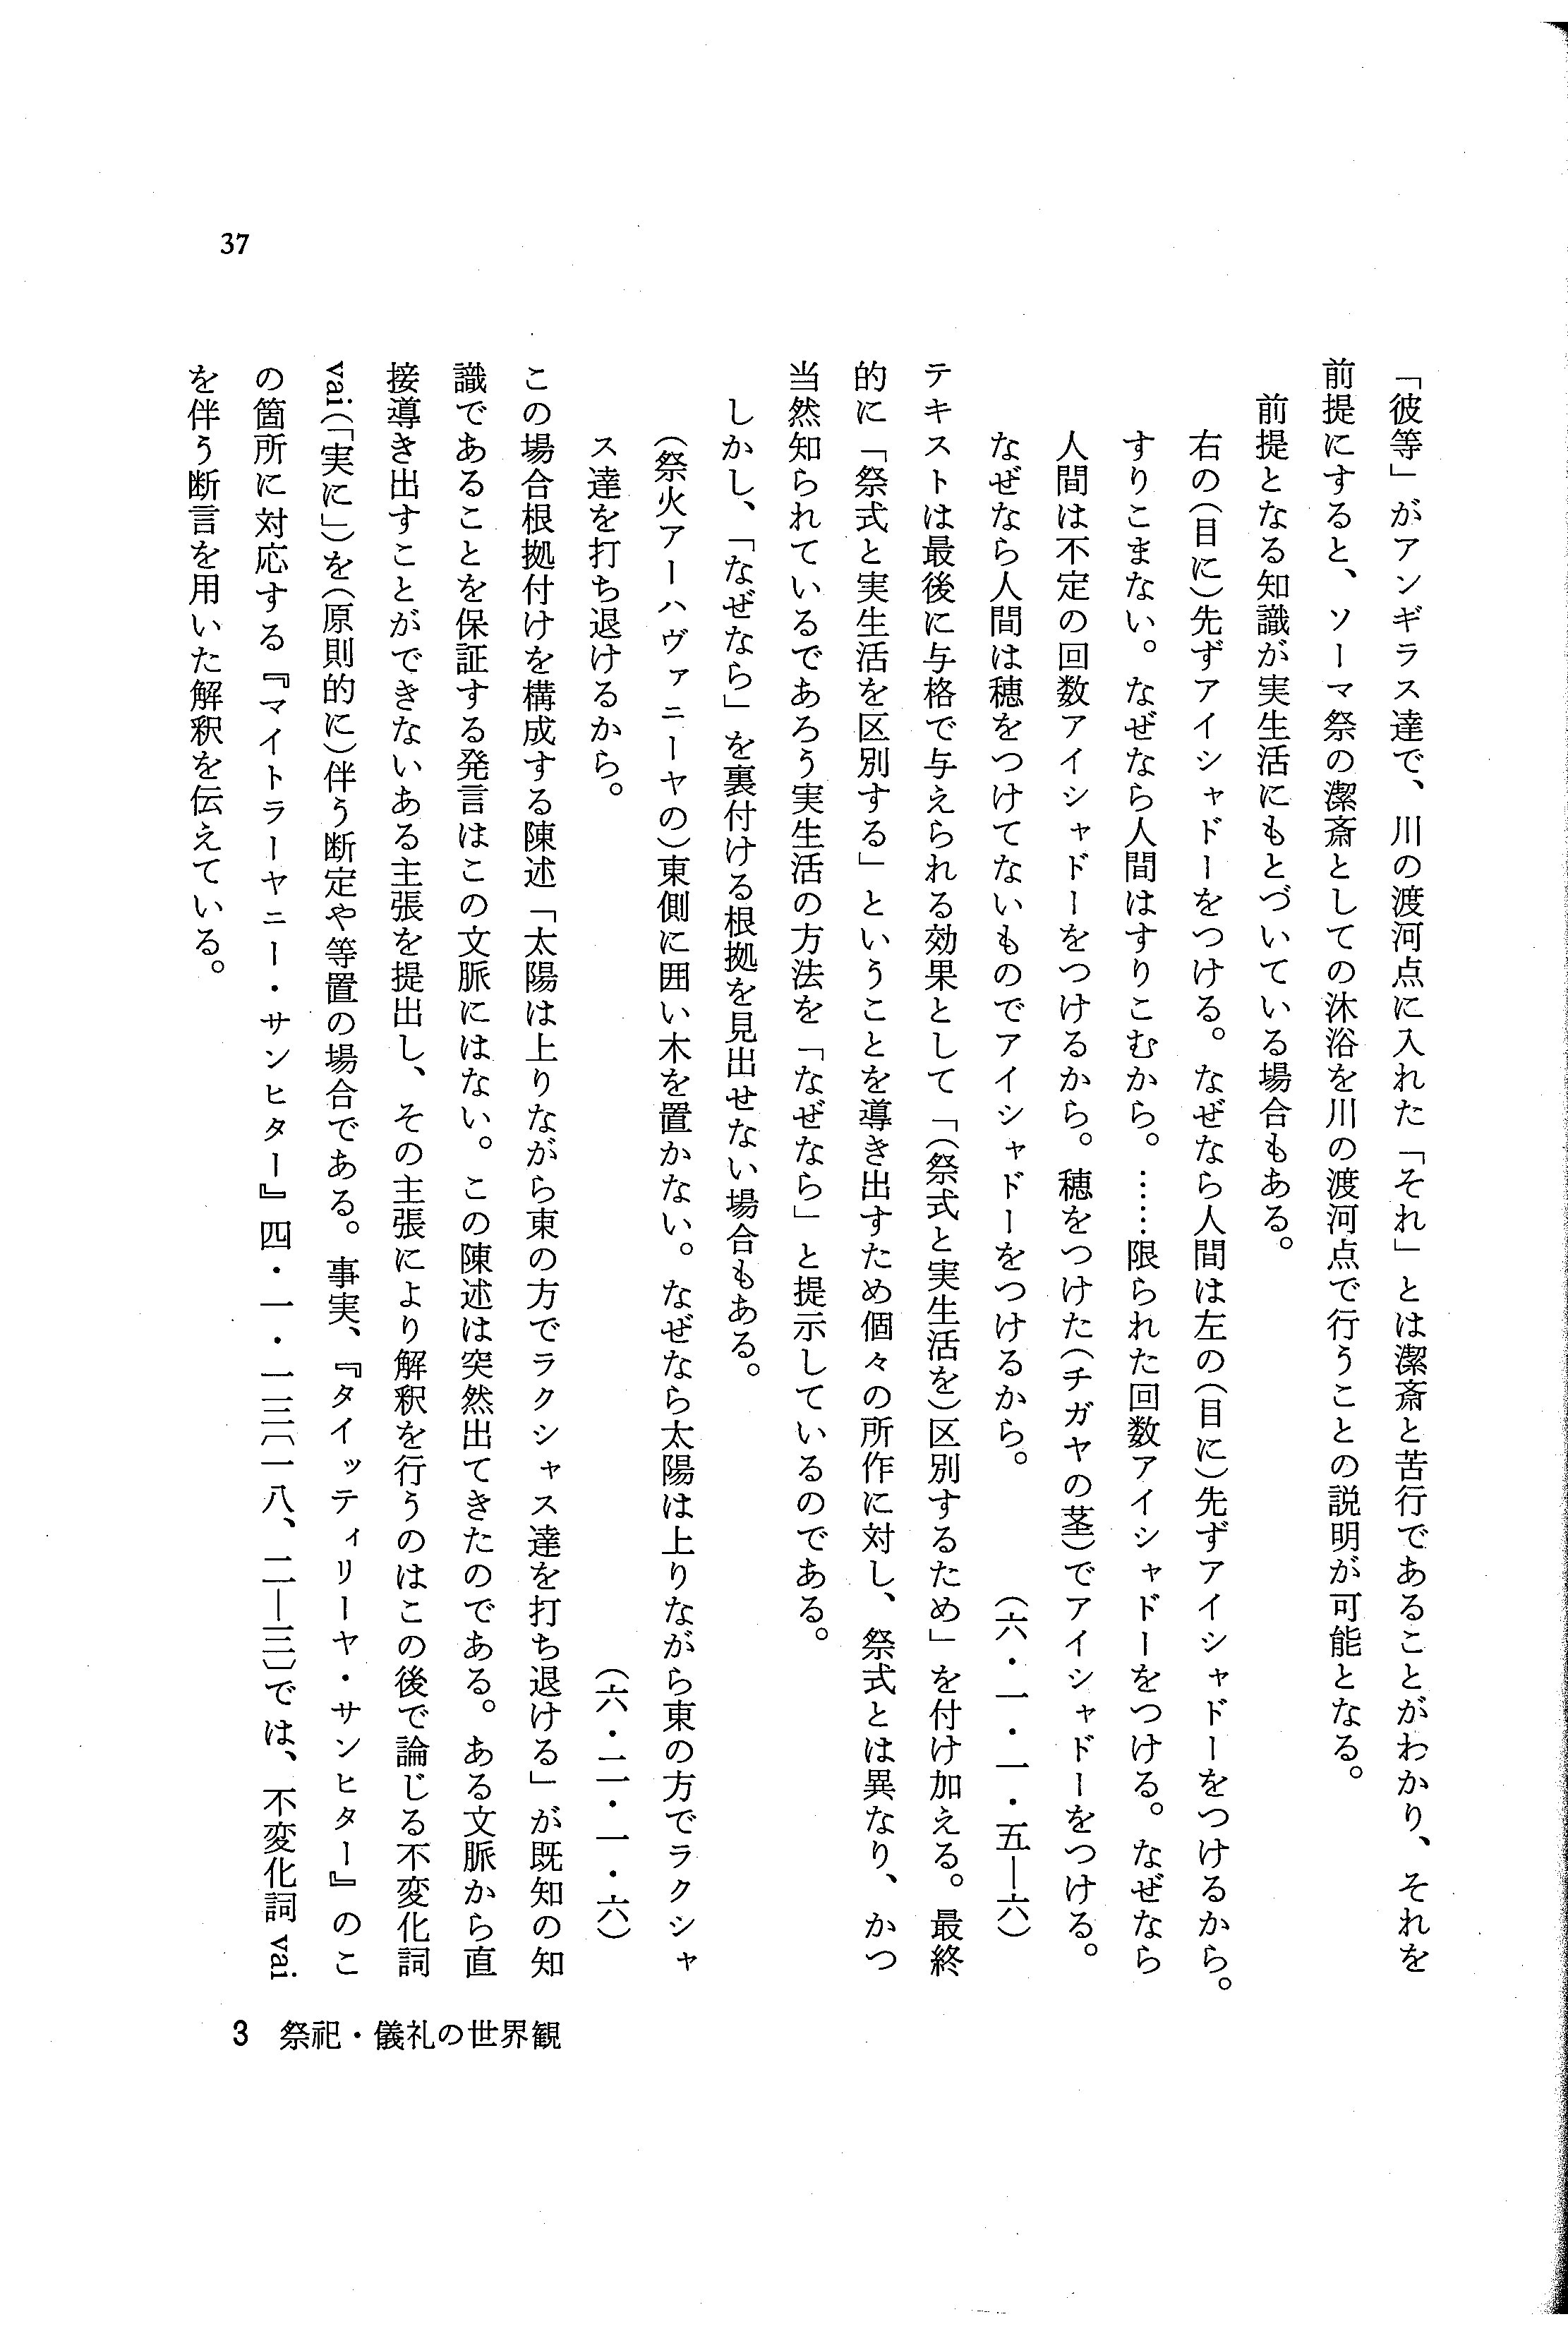 「彼等」がアンギラス達で、川の渡河点に入れた「それ」とは潔斎と苦行であることがわかり、それを
前提にすると、ソーマ祭の潔斎としての沐浴を川の渡河点で行うことの説明が可能となる。
前提となる知識が実生活にもとづいている場合もある。
右の(目に)先ずアイシャドーをつける。なぜなら人間は左の(目に)先ずアイシャドーをつけるから。
すりこまない。なぜなら人間はすりこむから。……限られた回数アイシャドーをつける。なぜなら
人間は不定の回数アイシャドーをつけるから。穂をつけた(チガヤの茎)でアイシャドーをつける。
なぜなら人間は穂をつけてないものでアイシャドーをつけるから。 (六・一・一・五―六)
テキストは最後に与格で与えられる効果として「(祭式と実生活を)区別するため」を付け加える。最終
的に「祭式と実生活を区別する」ということを導き出すため個々の所作に対し、祭式とは異なり、かつ
当然知られているであろう実生活の方法を「なぜなら」と提示しているのである。
しかし、「なぜなら」を裏付ける根拠を見出せない場合もある。
(祭火アーハヴァニーヤの)東側に囲い木を置かない。なぜなら太陽は上りながら東の方でラクシャ
ス達を打ち退けるから。 (六・二・一・六)
この場合根拠付けを構成する陳述「太陽は上りながら東の方でラクシャス達を打ち退ける」が既知の知
識であることを保証する発言はこの文脈にはない。この陳述は突然出てきたのである。ある文脈から直
接導き出すことができないある主張を提出し、その主張により解釈を行うのはこの後で論じる不変化詞
vai(「実に」)を(原則的に)伴う断定や等置の場合である。事実、『タイッティリーヤ・サンヒター』のこ
の箇所に対応する『マイトラーヤニー・サンヒター』四・一・一三〔一八、二―三〕では、不変化詞 vai
を伴う断言を用いた解釈を伝えている。
37
3 祭祀・儀礼の世界観